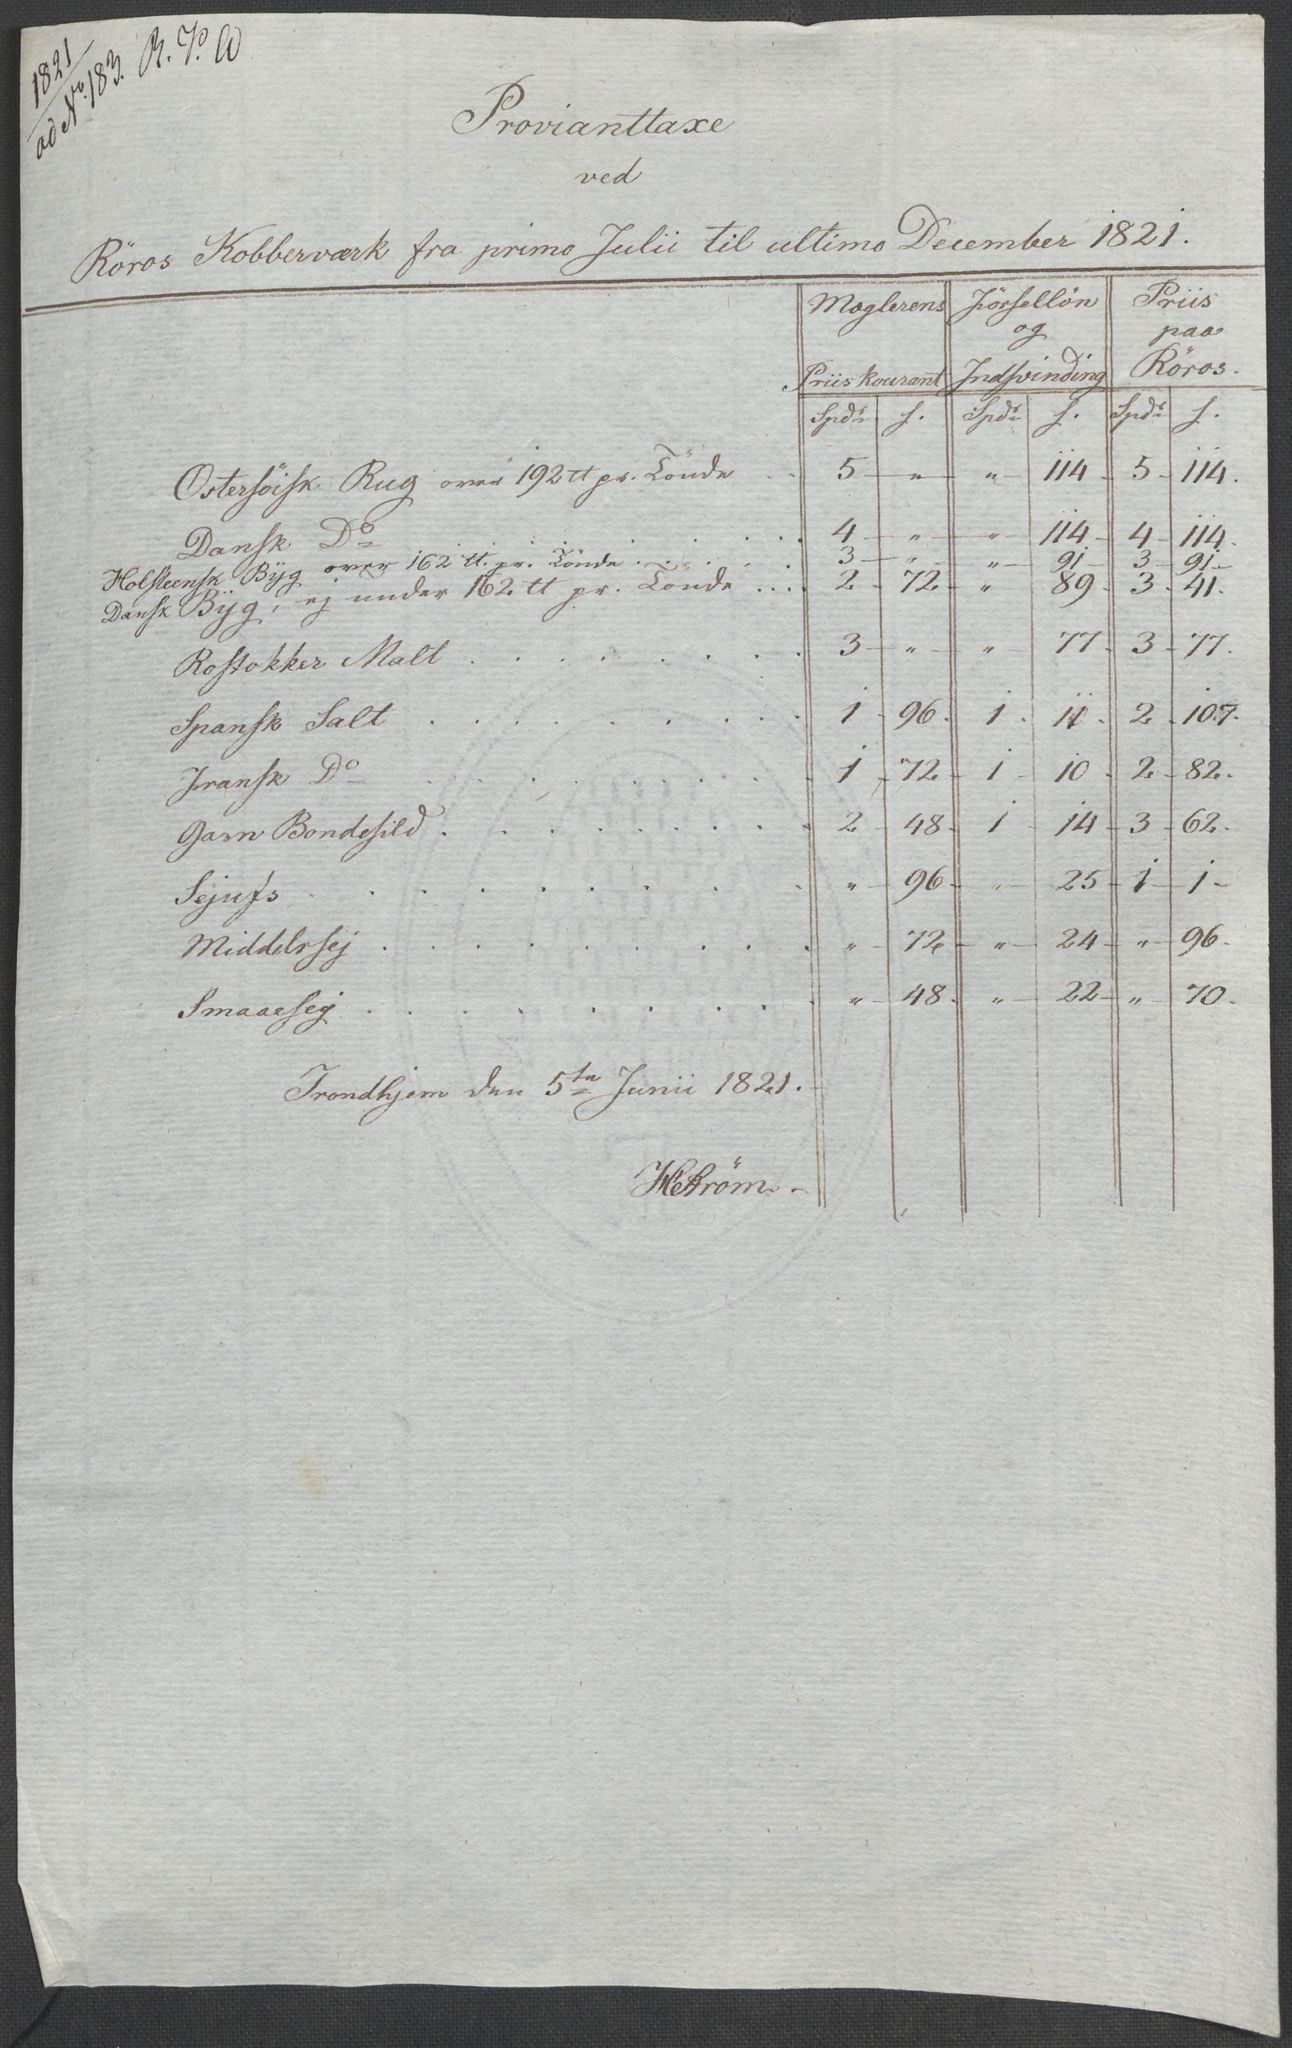 1821
ad No. 183. R. T. W
Provianttaxe
ved
Röros Kobberværk fra primo Julii til ultimo December 1821.
Mæglerens Priiskourant | Förselløn og Indsvinding | Priis paa Röros.
Spdr | s. | Spdr | s. | Spdr | s.
Ostersöisk Rug over 192 tt pr. Tönde . . 5 - " - " - 114 - 5 - 114.
Dansk Do . . . . . . . . . 4 - " - " - 114 - 4 - 114.
Holsteensk Byg over 162 tt. pr. Tönde . . . . 3 - " - " - 91 - 3 - 91 -
Dansk Byg, ej under 162 tt pr. Tönde .... 2 - 72 - " - 89 - 3 - 41.
Rostokker Malt . . . . . . . . 3 - " - " - 77 - 3 - 77.
Spansk Salt . . . . . . . . 1 - 96. 1 . 11 - 2 - 107.
Fransk Do . . . . . . . . 1 - 72 - 1 - 10 - 2 - 82.
Garn Bondesild . . . . . . . . 2 - 48 - 1 - 14 - 3 - 62.
Sejufs . . . . . . . . " - 96 - " - 25 - 1 - 1 -
Middelsej . . . . . . . . " - 72 - " - 24 - " - 96.
Smaaesej . . . . . . . . " - 48 - " - 22 - " - 70 -
Trondhjem den 5te Junii 1821.